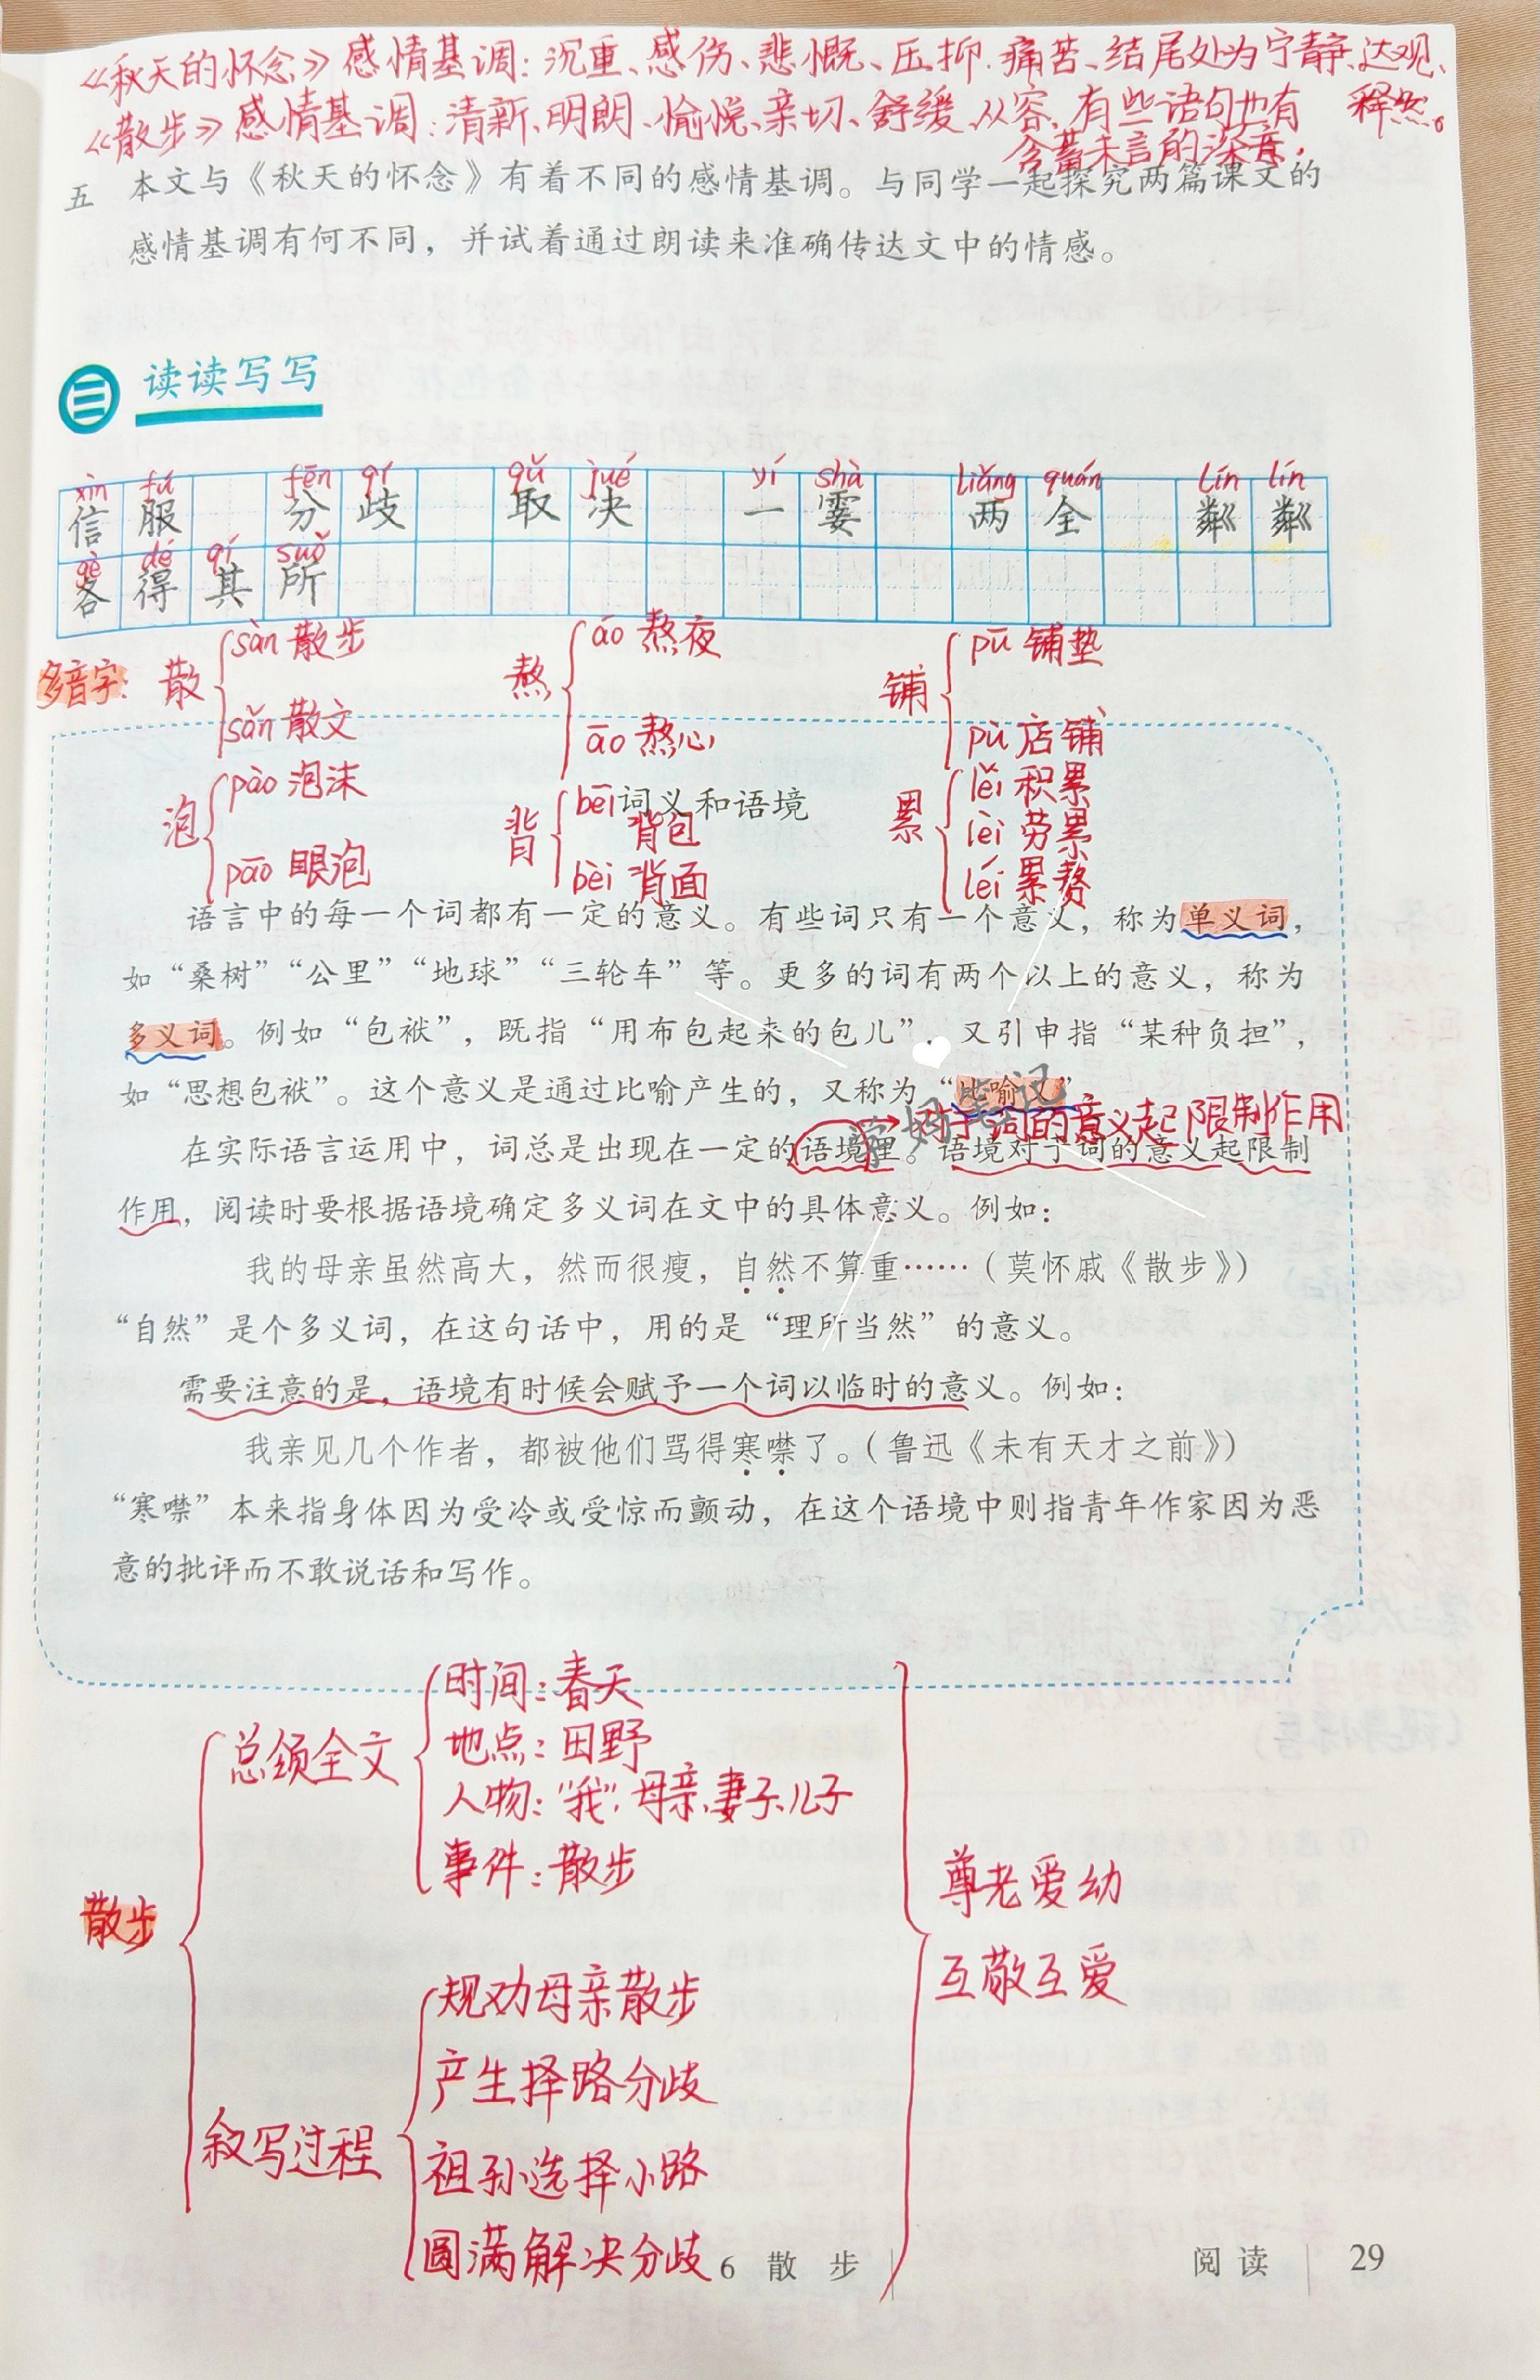 《秋天的怀念》感情基调：沉重、感伤、悲慨、压抑、痛苦、结尾处为宁静、达观、释然。
《散步》感情基调：清新、明朗、愉悦、亲切、舒缓、从容、有些语句也有含蓄未言的深意.
五 本文与《秋天的怀念》有着不同的感情基调。与同学一起探究两篇课文的
感情基调有何不同，并试着通过朗读来准确传达文中的情感。
读读写写
xìn fú fēn qí qǔ jué yí shà liǎng quán lín lín
信服 分歧 取决 一霎 两全 粼粼
gè dé qí suǒ
各得其所
多音字：散 sàn 散步 sǎn 散文
熬 áo 熬夜 āo 熬心
铺 pū 铺垫 pù 店铺
泡 pào 泡沫 pāo 眼泡
背 bēi 背包 bèi 背面
累 lěi 积累 lèi 劳累 léi 累赘
词义和语境
语言中的每一个词都有一定的意义。有些词只有一个意义，称为单义词，
如“桑树”“公里”“地球”“三轮车”等。更多的词有两个以上的意义，称为
多义词。例如“包袱”，既指“用布包起来的包儿”，又引申指“某种负担”，
如“思想包袱”。这个意义是通过比喻产生的，又称为“比喻义”
→对于词的意义起限制作用
在实际语言运用中，词总是出现在一定的语境里。语境对于词的意义起限制
作用，阅读时要根据语境确定多义词在文中的具体意义。例如：
我的母亲虽然高大，然而很瘦，自然不算重……（莫怀戚《散步》）
“自然”是个多义词，在这句话中，用的是“理所当然”的意义。
需要注意的是，语境有时候会赋予一个词以临时的意义。例如：
我亲见几个作者，都被他们骂得寒噤了。（鲁迅《未有天才之前》）
“寒噤”本来指身体因为受冷或受惊而颤动，在这个语境中则指青年作家因为恶
意的批评而不敢说话和写作。
散步
总领全文
时间：春天
地点：田野
人物：“我”、母亲、妻子、儿子
事件：散步
叙写过程
规劝母亲散步
产生择路分歧
祖孙选择小路
圆满解决分歧
尊老爱幼
互敬互爱
6 散步
阅读 29